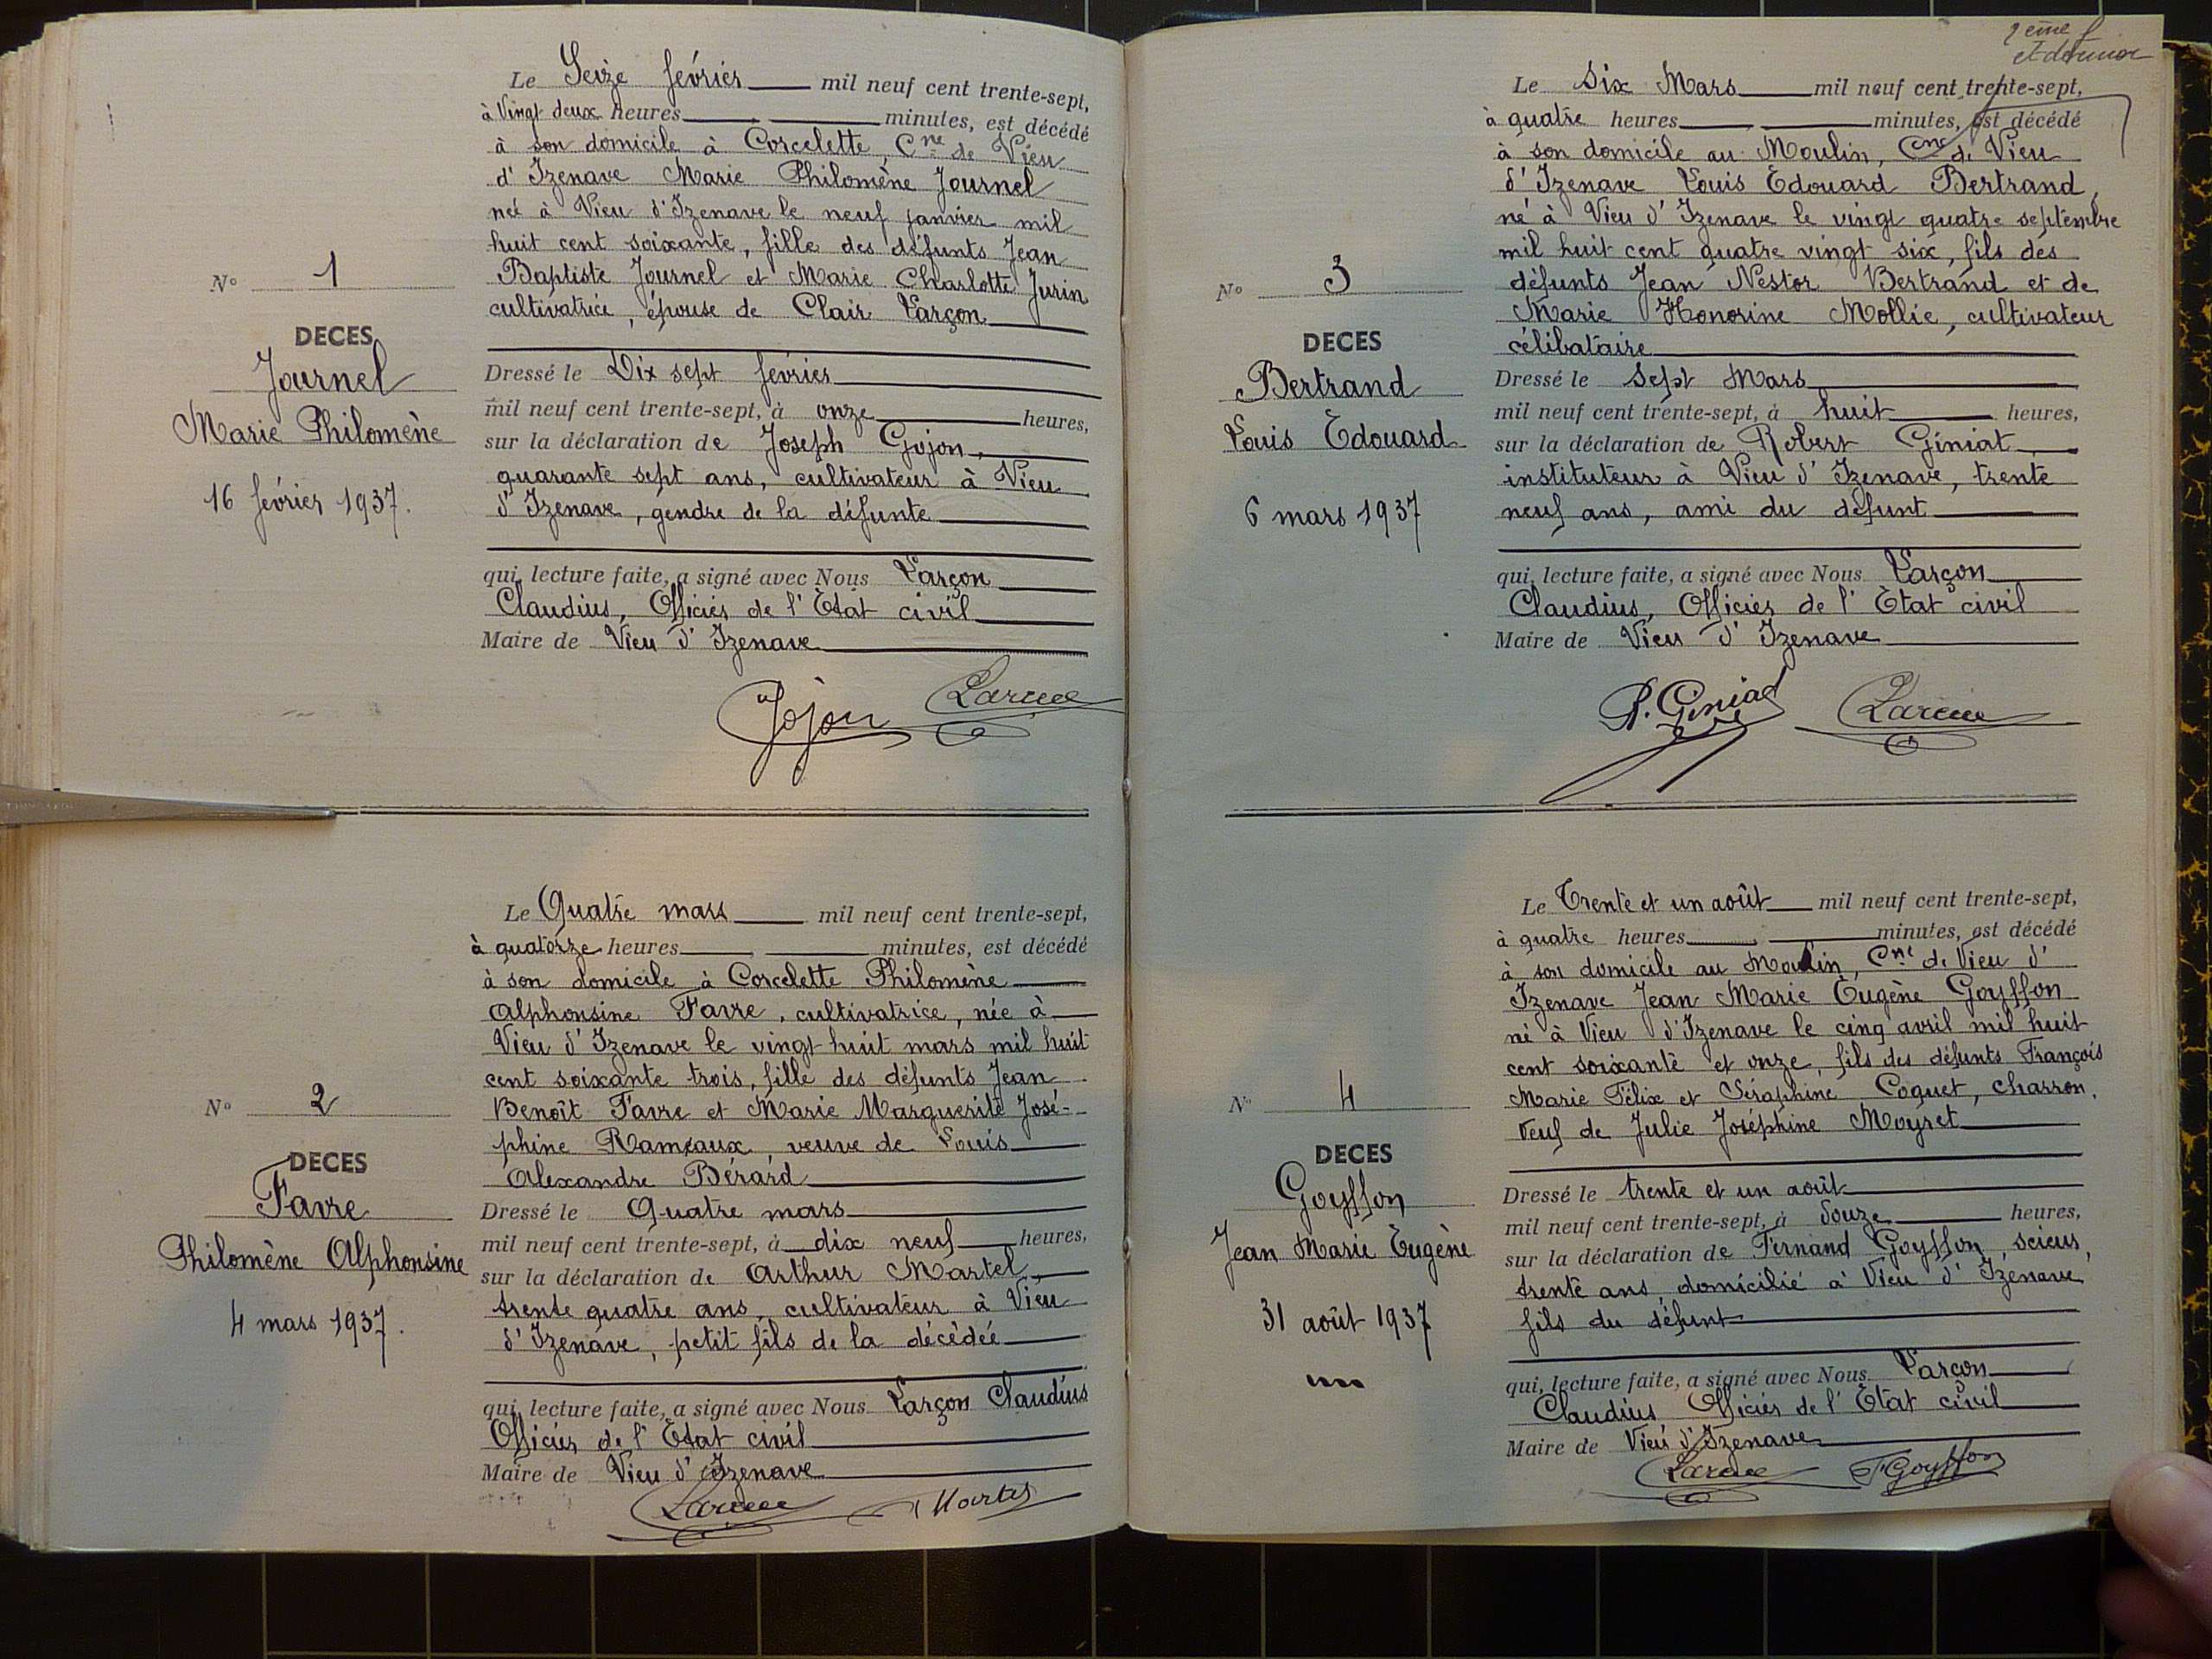 Le Seize février mil neuf cent trente-sept,
à Vingt deux heures minutes, est décédé
à son domicile à Corcelette, Cne de Vieu
d'Izenave Marie Philomène Journel
née à Vieu d'Izenave le neuf janvier mil
huit cent soixante, fille des défunts Jean
Baptiste Journel et Marie Charlotte Jurin
cultivatrice, épouse de Clair Larçon
N° 1
DECES
Journel
Marie Philomène
16 février 1937.
Dressé le Dix sept février
mil neuf cent trente-sept, à onze heures,
sur la déclaration de Joseph Gojon,
quarante sept ans, cultivateur à Vieu
d'Izenave, gendre de la défunte
qui, lecture faite, a signé avec Nous Larçon
Claudius, Officier de l'Etat civil
Maire de Vieu d'Izenave
Gojon
N° 2
DECES
Favre
Philomène Alphonsine
4 mars 1937.
Le Quatre mars mil neuf cent trente-sept,
à quatorze heures minutes, est décédé
à son domicile à Corcelette Philomène
Alphonsine Favre, cultivatrice, née à
Vieu d'Izenave le vingt huit mars mil huit
cent soixante trois, fille des défunts Jean
Benoît Favre et Marie Marguerite José-
phine Rameaux, veuve de Louis
Alexandre Bérard
Dressé le Quatre mars
mil neuf cent trente-sept, à dix neuf heures,
sur la déclaration de Arthur Martel,
trente quatre ans, cultivateur à Vieu
d'Izenave, petit fils de la décédée
qui, lecture faite, a signé avec Nous Larçon Claudius
Officier de l'Etat civil
Maire de Vieu d'Izenave
2ème f
et dernier
Le Six Mars mil neuf cent trente-sept,
à quatre heures minutes, est décédé
à son domicile au Moulin, Cne de Vieu
d'Izenave Louis Edouard Bertrand,
né à Vieu d'Izenave le vingt quatre septembre
mil huit cent quatre vingt six, fils des
défunts Jean Nestor Bertrand et de
Marie Honorine Mollie, cultivateur
célibataire
N° 3
DECES
Bertrand
Louis Edouard
6 mars 1937
Dressé le Sept Mars
mil neuf cent trente-sept, à huit heures,
sur la déclaration de Robert Giniat,
instituteur à Vieu d'Izenave, trente
neuf ans, ami du défunt
qui, lecture faite, a signé avec Nous Larçon
Claudius, Officier de l'Etat civil
Maire de Vieu d'Izenave
R. Giniat
N° 4
DECES
Goyffon
Jean Marie Eugène
31 août 1937
Le Trente et un août mil neuf cent trente-sept,
à quatre heures minutes, est décédé
à son domicile au Moulin, Cne de Vieu d'
Izenave Jean Marie Eugène Goyffon
né à Vieu d'Izenave le cinq avril mil huit
cent soixante et onze, fils des défunts François
Marie Félix et Séraphine Coquet, charron,
veuf de Julie Joséphine Moyret
Dressé le trente et un août
mil neuf cent trente-sept, à douze heures,
sur la déclaration de Fernand Goyffon, scieur,
trente ans, domicilié à Vieu d'Izenave,
fils du défunt
qui, lecture faite, a signé avec Nous Larçon
Claudius Officier de l'Etat civil
Maire de Vieu d'Izenave
F Goyffon